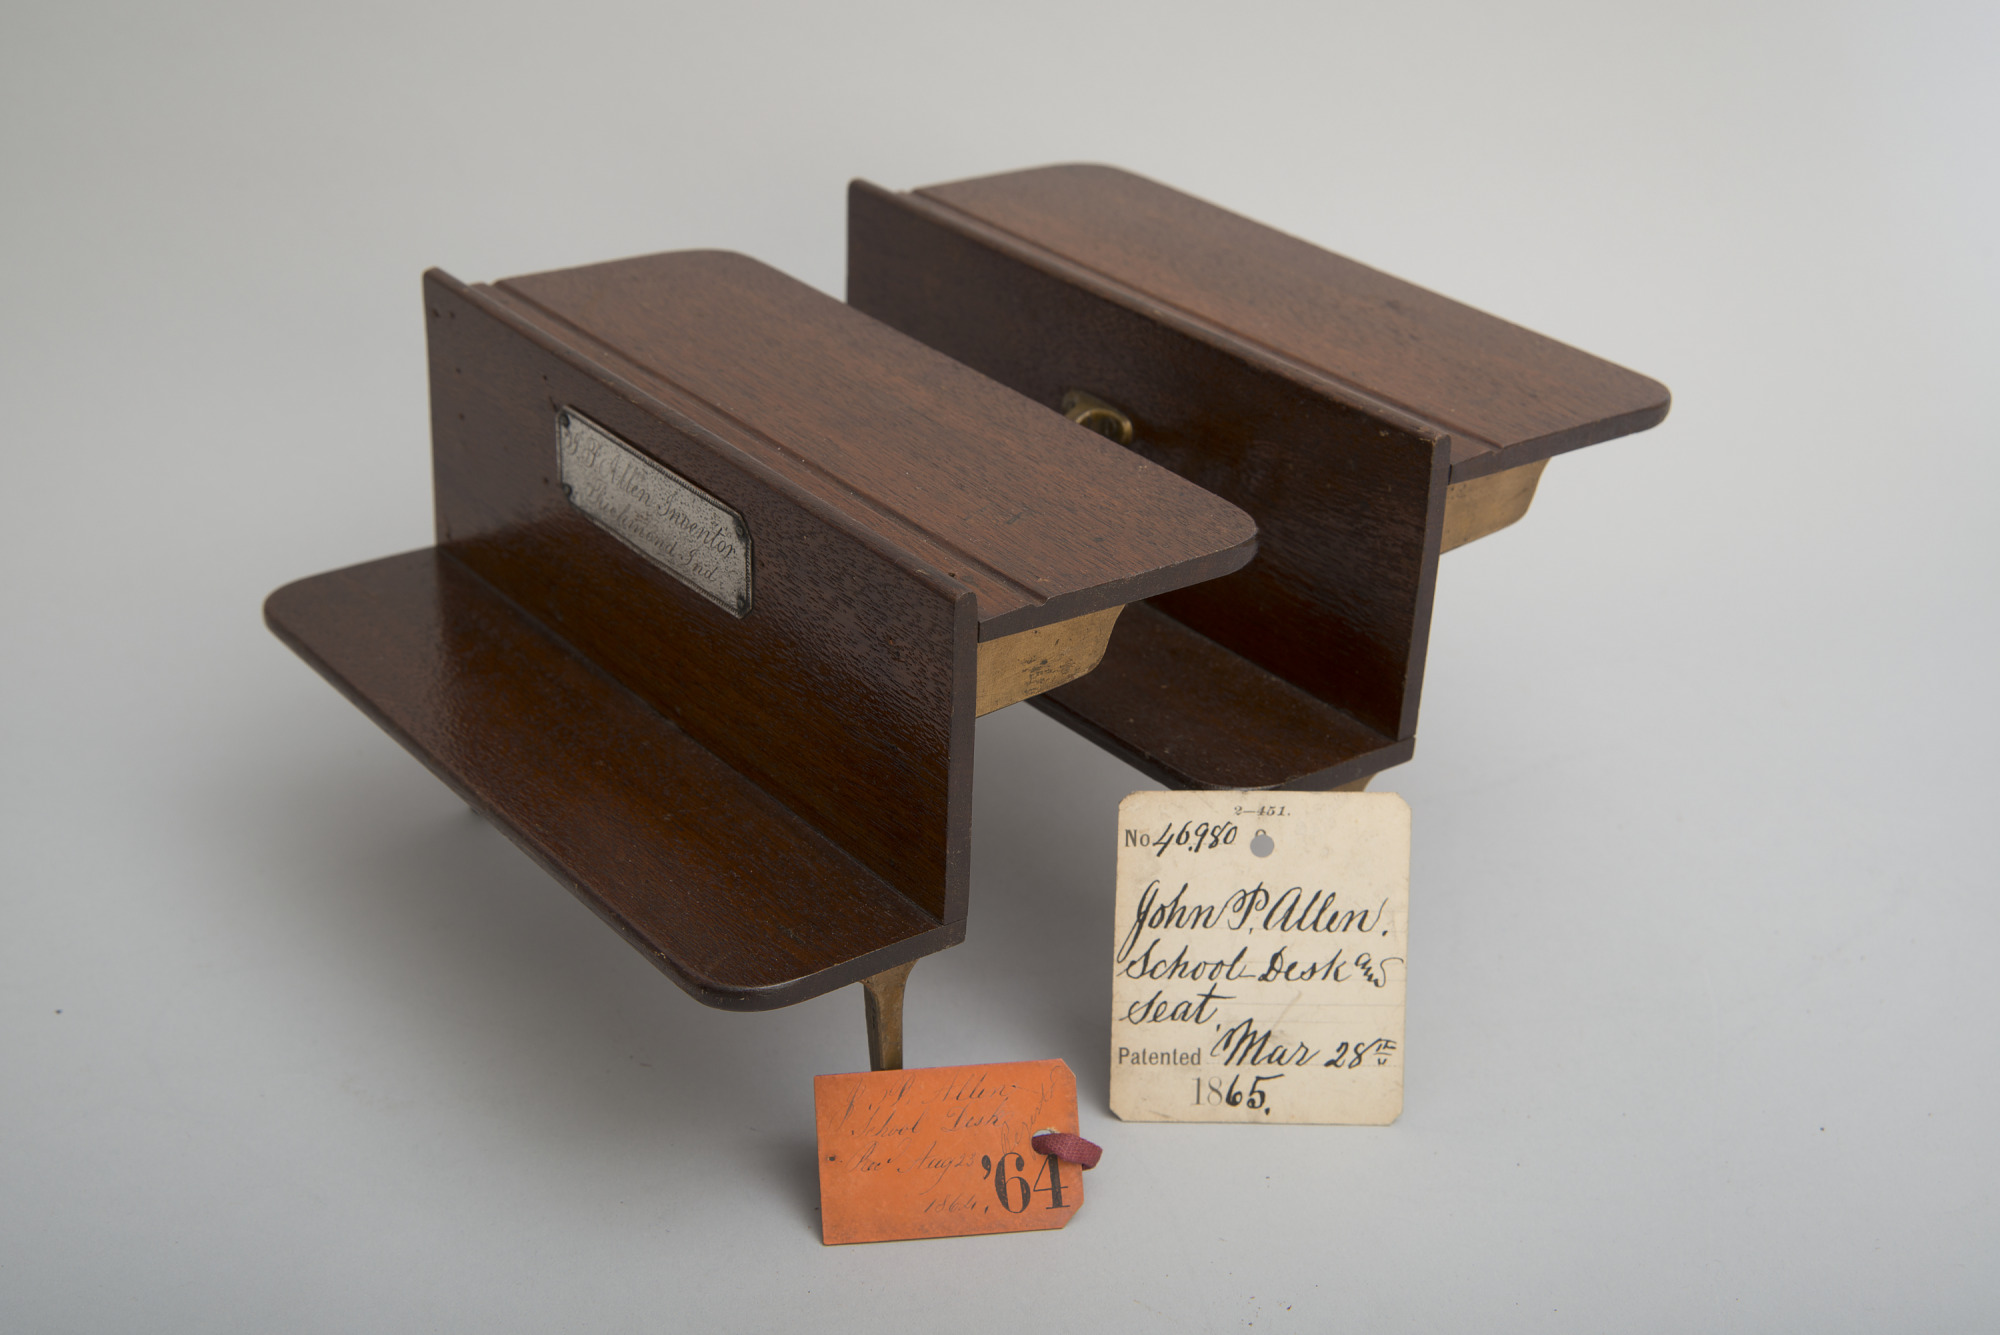 J. P. Allen Inventor
Richmond Ind.
2—451.
No 46,980
John P. Allen.
School Desk and
Seat,
Patented Mar 28th
1865.
J. P. Allen
School Desk
Rec' Aug 23
1864.
'64